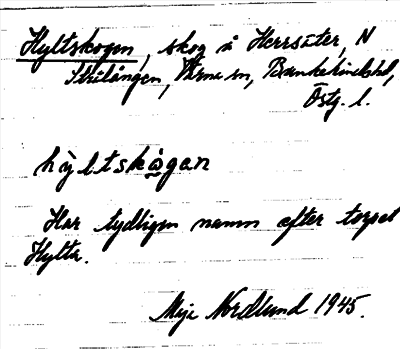 Hyltskogen, skog å Herrsäter, N
Strålången, Värna sn, Bankekinds hd,
Östg. l.
hyltskogan
Har tydligen namn efter torpet
Hylta.
Maja Nordlund 1945.